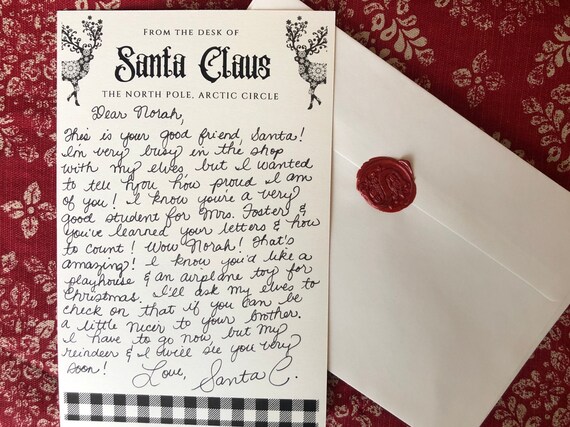 FROM THE DESK OF
Santa Claus
THE NORTH POLE, ARCTIC CIRCLE
Dear Norah,
This is your good friend, Santa!
I'm very busy in the shop
with my elves, but I wanted
to tell you how proud I am
of you! I know you're a very
good student for Mrs. Foster &
you've learned your letters & how
to count! Wow Norah! That's
amazing! I know you'd like a
playhouse & an airplane toy for
Christmas. I'll ask my elves to
check on that if you can be
a little nicer to your brother.
I have to go now, but my
reindeer & I will see you very
soon! Love, Santa C.